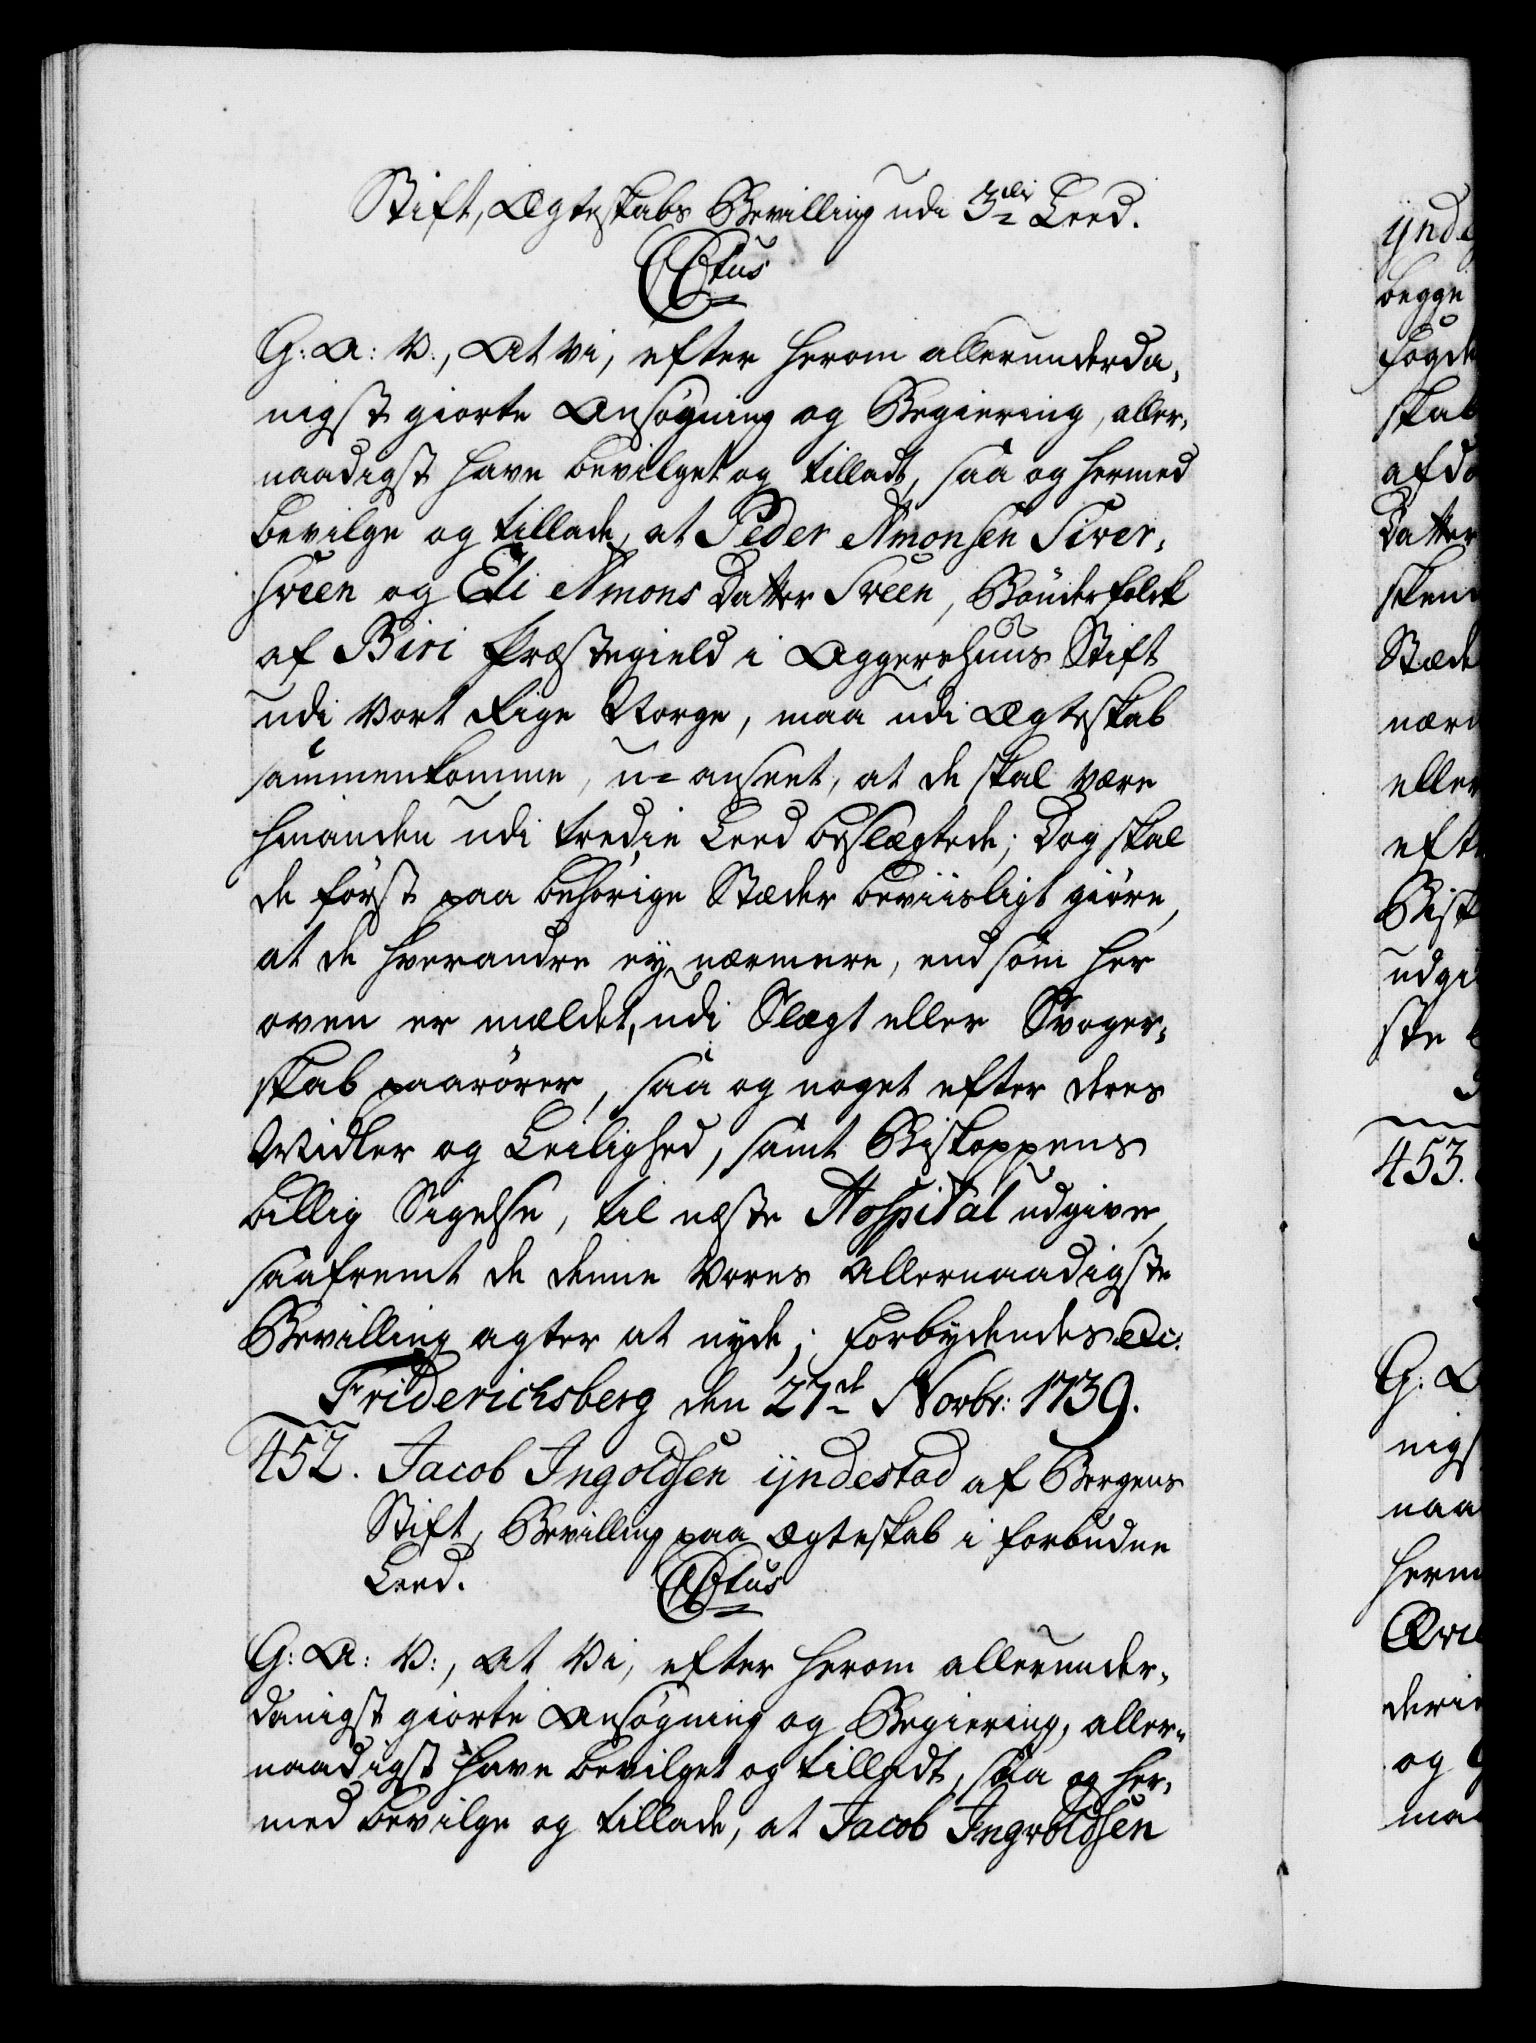 Stift, Ægteskabs Bevilling udi 3die Leed.
C6tus
G: A: V:, At Vi, efter herom allerunderda-
nigst giorte Ansøgning og Begiering, aller-
naadigst have bevilget og tilladt, saa og hermed
bevilge og tillade, at Peder Amonsen Siver-
sveen og Eli Amons Datter Sveen, Bönderfolck
af Biri Præstegield i Aggershuus Stift
udi Vort Rige Norge, maa udi Ægteskab
sammenkomme, u-anseet, at de skal være
hinanden udi tredie Leed beslægtede; Dog skal
de först paa behörige Stæder beviisligt giöre,
at de hverandre ey nærmere, end som her
oven er meldet, udi Slægt eller Svoger-
skab paarörer, saa og noget efter deres
Midler og Leilighed, samt Biskoppens
billig Sigelse, til næste Hospital udgive,
saafremt de denne Vores Allernaadigste
Bevilling agter at nyde; Forbydendes etc.
Friderichsberg den 27de Novbr: 1739.
452. Jacob Ingoldsen ijndestad af Bergens
Stift, Bevilling paa Ægteskab i forbudne
Leed.
C6tus
G: A: V:, At Vi, efter herom allerunder-
danigst giorte Ansøgning og Begiering, aller-
naadigst have bevilget og tilladt, saa og her-
med bevilge og tillade, at Jacob Ingvoldsen
ijnde
begge
Fogde
skab
afdø
Datter
sken
Stæde
nærm
eller
efte
Bisk
udgi
ste
453.
G: A
nigs
naa
herm
deri
og
maa